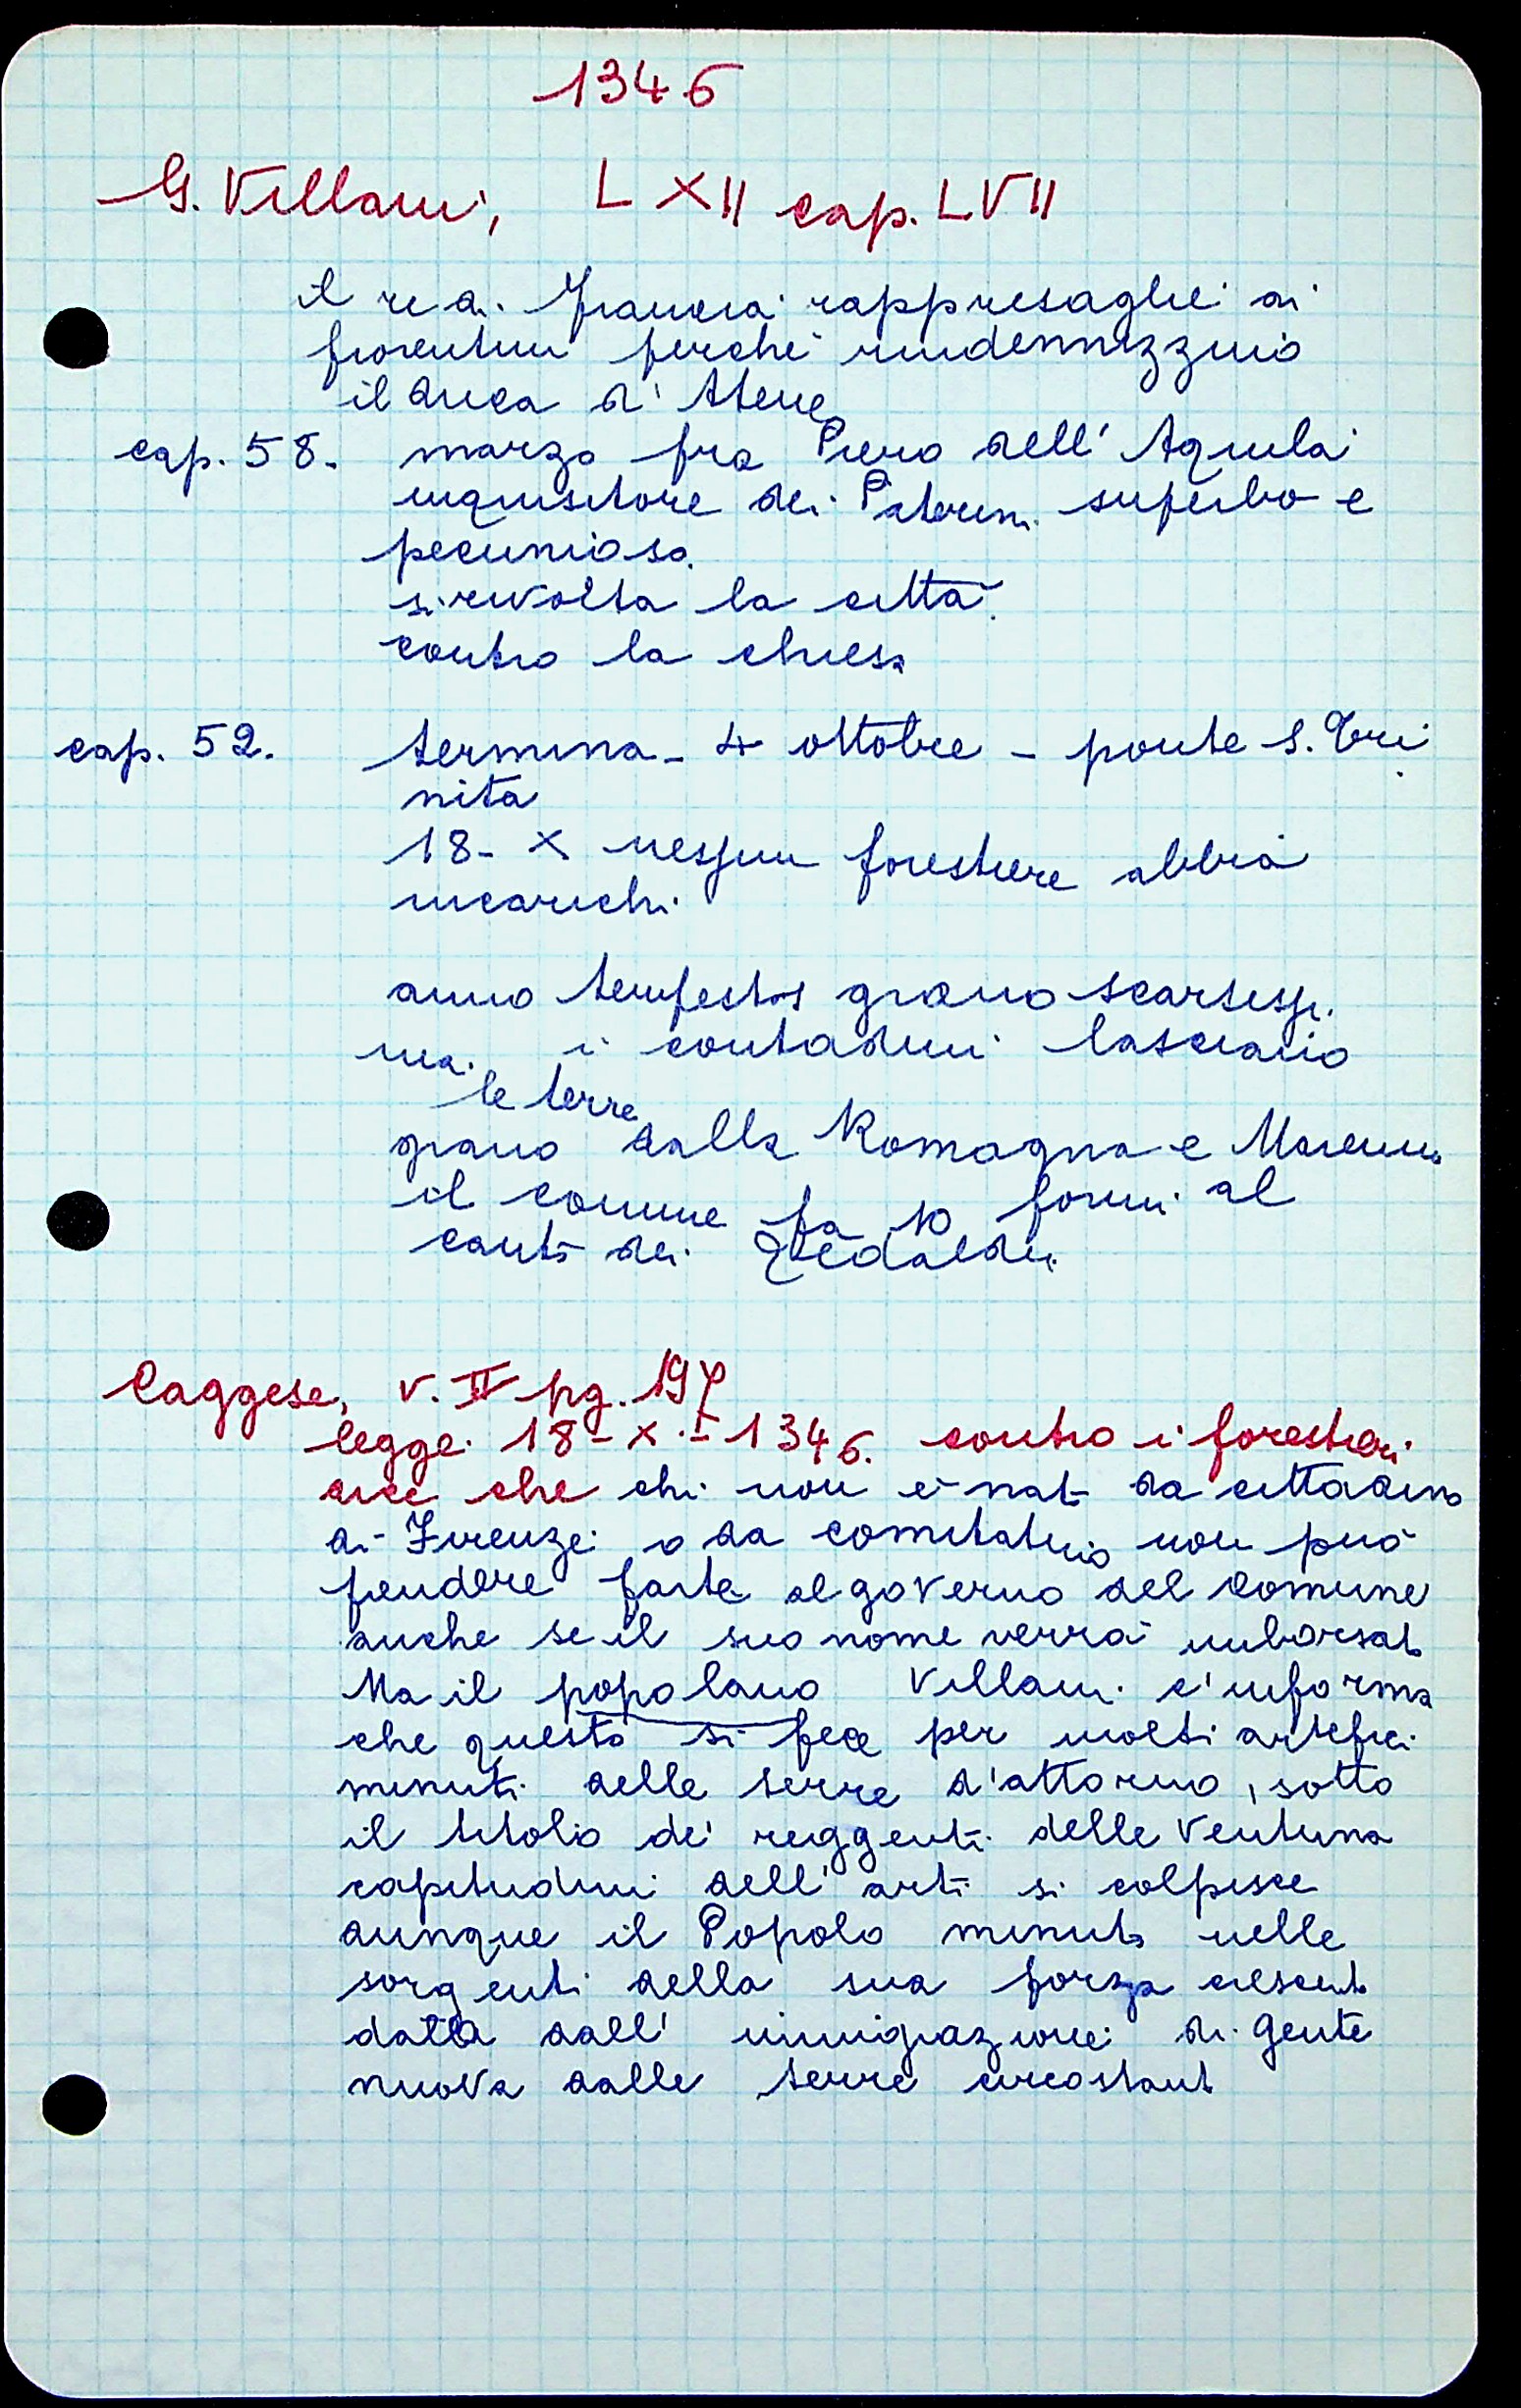 1346
G. Villani, L XII cap. LVII
il re di Francia rappresaglie ai
fiorentini perché rindennizzino
il duca d'Atene
cap. 58. marzo fra Piero dell'Aquila
inquisitore dei Paterini superbo e
pecunioso.
si rivolta la città
contro la chiesa
cap. 52. termina - 4 ottobre - ponte S. Tri
nita
18 - X nessun forestiere abbia
incarichi.
anno tempestos grano scarsissi.
ma. i contadini lasciano
le terre
grano dalla Romagna e Maremma
il comune fa 10 forni al
canto dei Tedaldi.
Caggese, v. II pg. 197
legge 18 - X - 1346. contro i forestieri
dice che chi non è nato da cittadino
di Firenze o da comitatino non può
prendere parte al governo del comune
anche se il suo nome verrà imborsato
Ma il popolano Villani c'informa
che questo si fece per molti artefici
minuti delle terre d'attorno, sotto
il titolo de' reggenti delle ventuna
capitudini dell'arti si colpisce
dunque il Popolo minuto nelle
sorgenti della sua forza crescente
datta dall' immigrazione di gente
nuova dalle terre circostanti